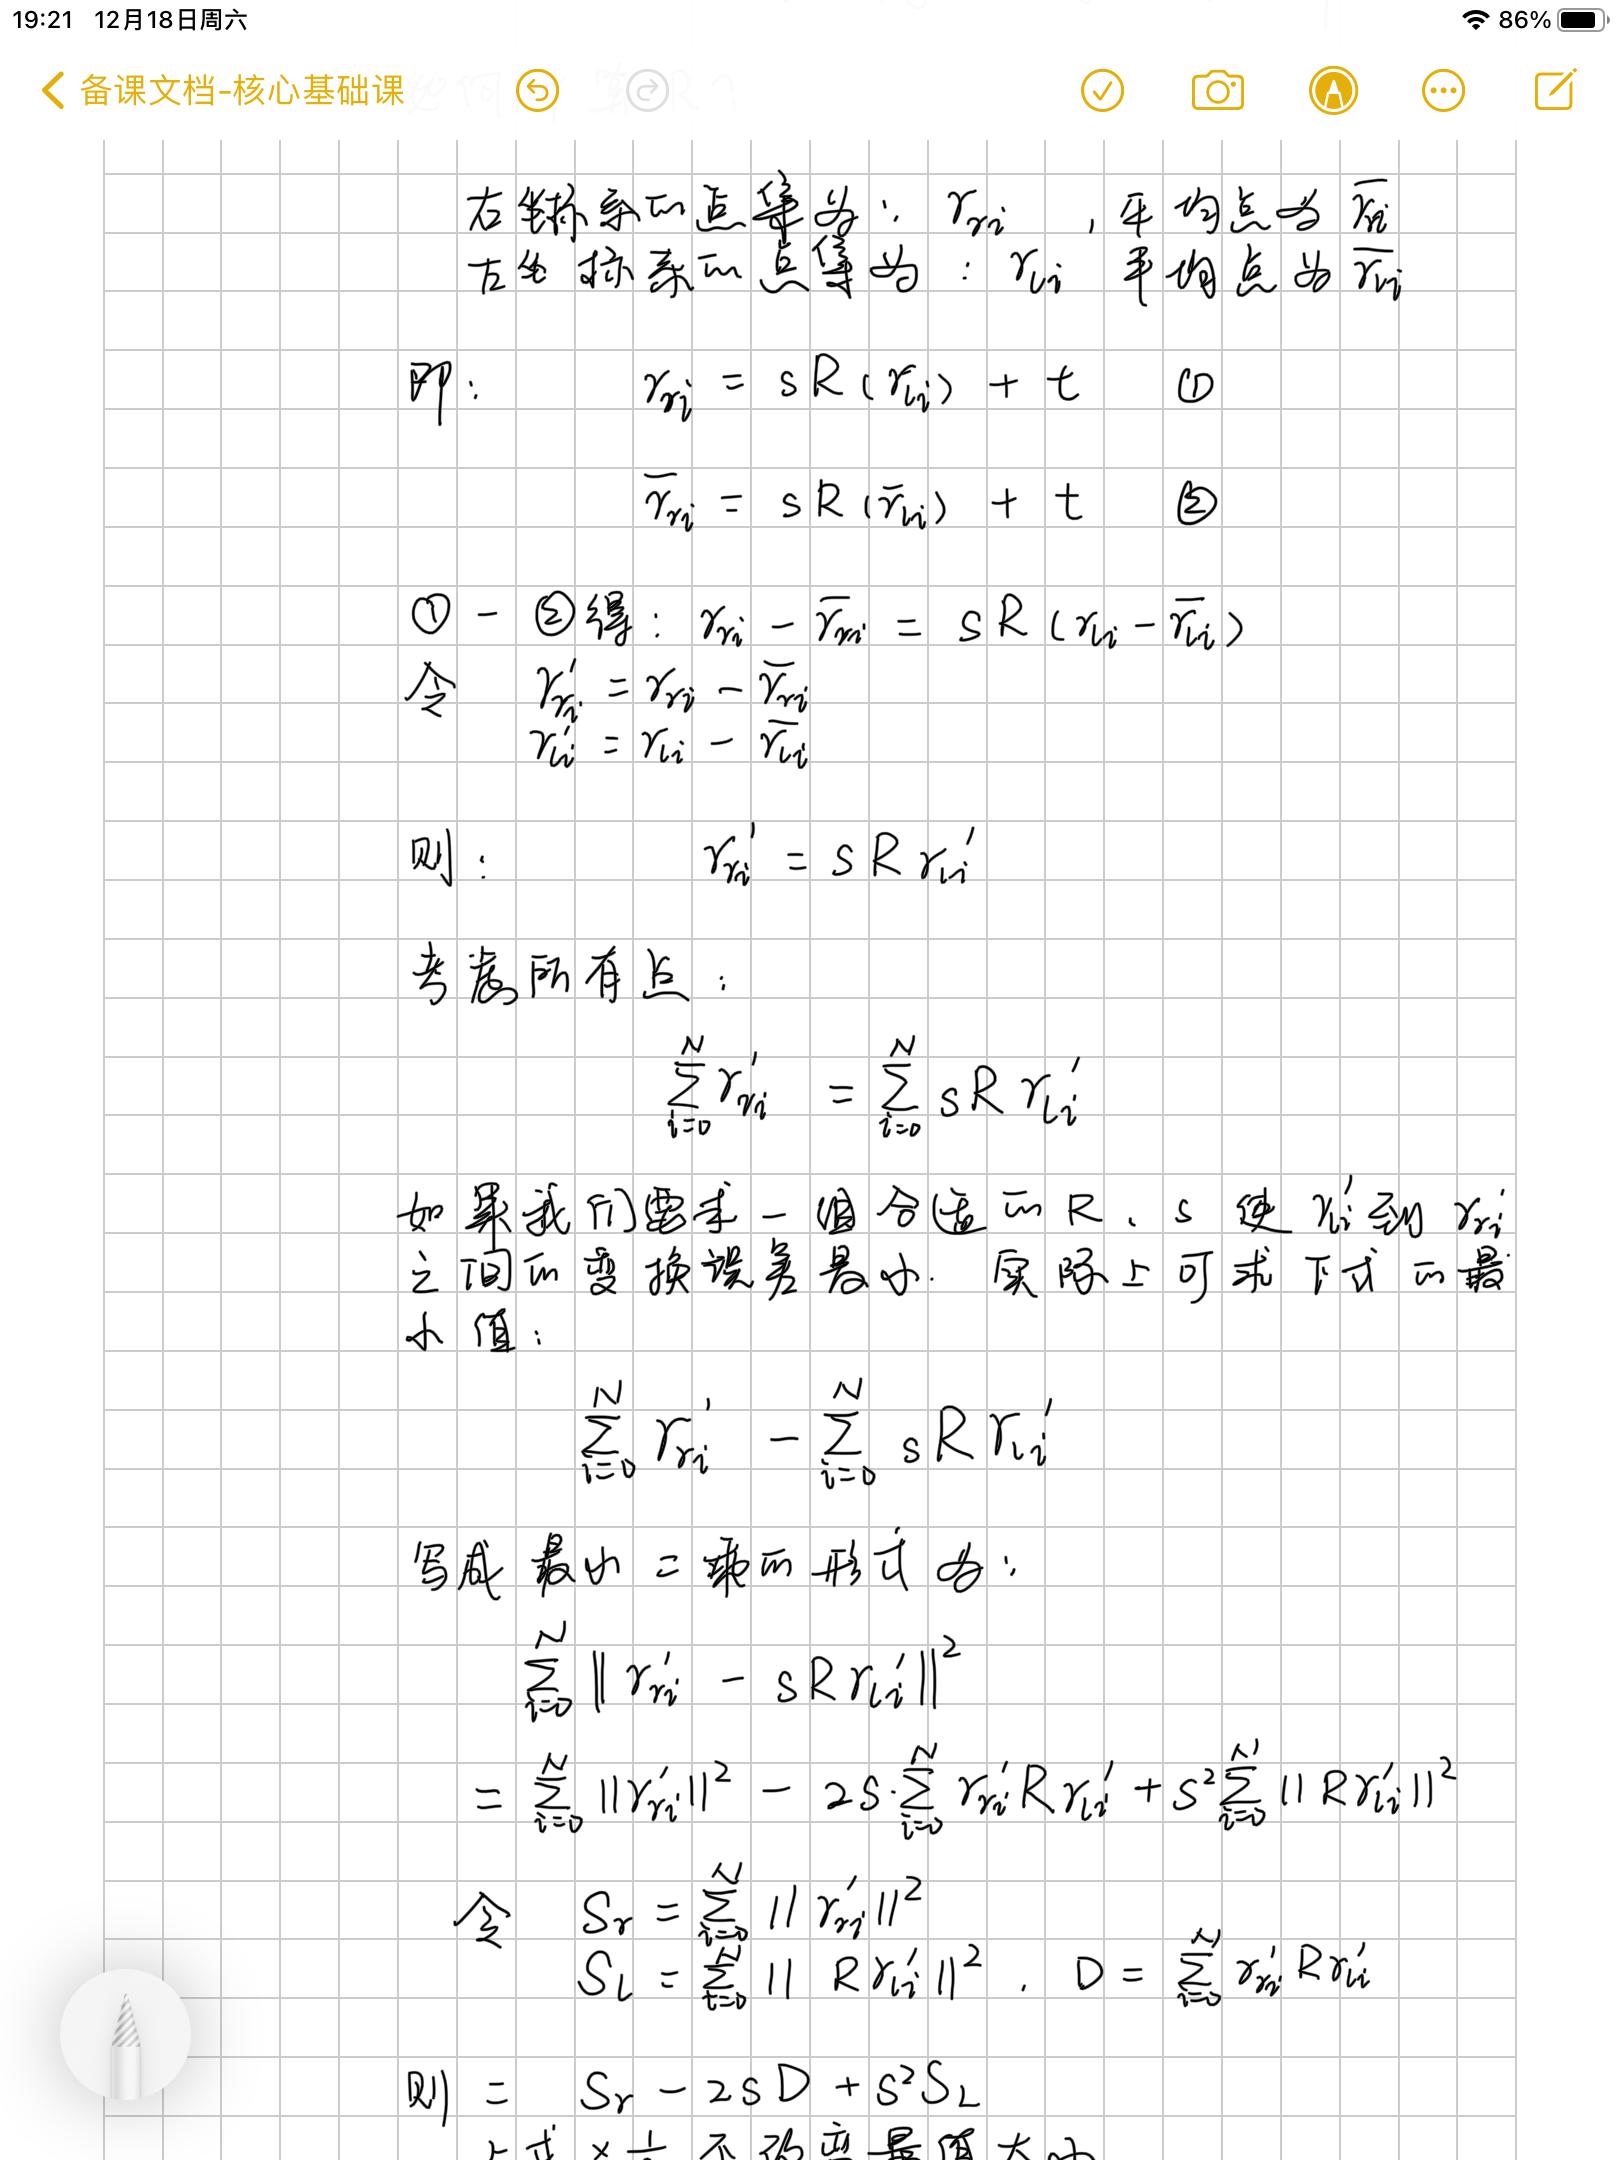 19:21 12月18日周六 86%
备课文档-核心基础课
右坐标系的点集为: r_{ri} , 平均点为 \bar{r}_{ri}
左坐标系的点集为: r_{li} 平均点为 \bar{r}_{li}
即: r_{ri} = sR(r_{li}) + t ①
\bar{r}_{ri} = sR(\bar{r}_{li}) + t ②
① - ②得: r_{ri} - \bar{r}_{ri} = sR(r_{li} - \bar{r}_{li})
令 r'_{ri} = r_{ri} - \bar{r}_{ri}
r'_{li} = r_{li} - \bar{r}_{li}
则: r'_{ri} = sRr'_{li}
考虑所有点:
\sum_{i=0}^{N} r'_{ri} = \sum_{i=0}^{N} sRr'_{li}
如果我们要求一组合适的R、s使r'_{li}到r'_{ri}
之间的变换误差最小. 实际上可求下式的最
小值:
\sum_{i=0}^{N} r'_{ri} - \sum_{i=0}^{N} sRr'_{li}
写成最小二乘的形式为:
\sum_{i=0}^{N} ||r'_{ri} - sRr'_{li}||^2
= \sum_{i=0}^{N} ||r'_{ri}||^2 - 2s·\sum_{i=0}^{N} r'_{ri}Rr'_{li} + s^2\sum_{i=0}^{N} ||Rr'_{li}||^2
令 S_r = \sum_{i=0}^{N} ||r'_{ri}||^2
S_l = \sum_{i=0}^{N} ||Rr'_{li}||^2 . D = \sum_{i=0}^{N} r'_{ri}Rr'_{li}
则 = S_r - 2sD + s^2S_L
上式×